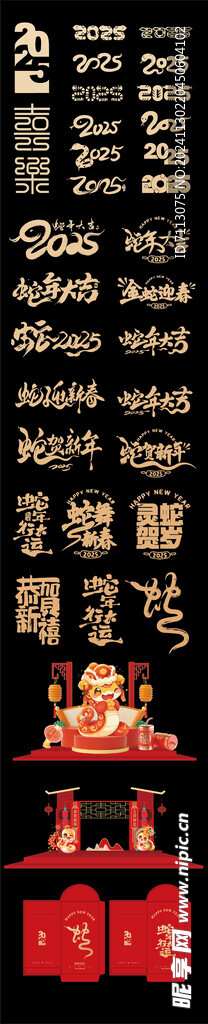 2025
2025
2025
2025
2025
2025
2025
2025
2025
2025
2025
2025
喜乐
蛇年大吉
2025
HAPPY NEW YEAR
蛇年大吉
2025
蛇年大吉
金蛇迎春
蛇2025
蛇年大吉
蛇迎新春
蛇年大吉
蛇贺新年
2025
HAPPY NEW YEAR
蛇贺新年
2025
蛇年行大运
HAPPY NEW YEAR
蛇舞新春
2025
HAPPY NEW YEAR
灵蛇贺岁
2025
恭贺新禧
蛇年行大运
2025
HAPPY NEW YEAR
2025
HAPPY NEW YEAR
蛇年行大运
ID:7113075 NO:20241130220450604102
昵享网 www.nipic.cn